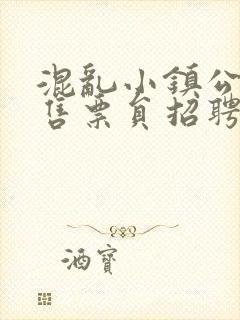 混亂小鎮公
售票員招聘
酒寶